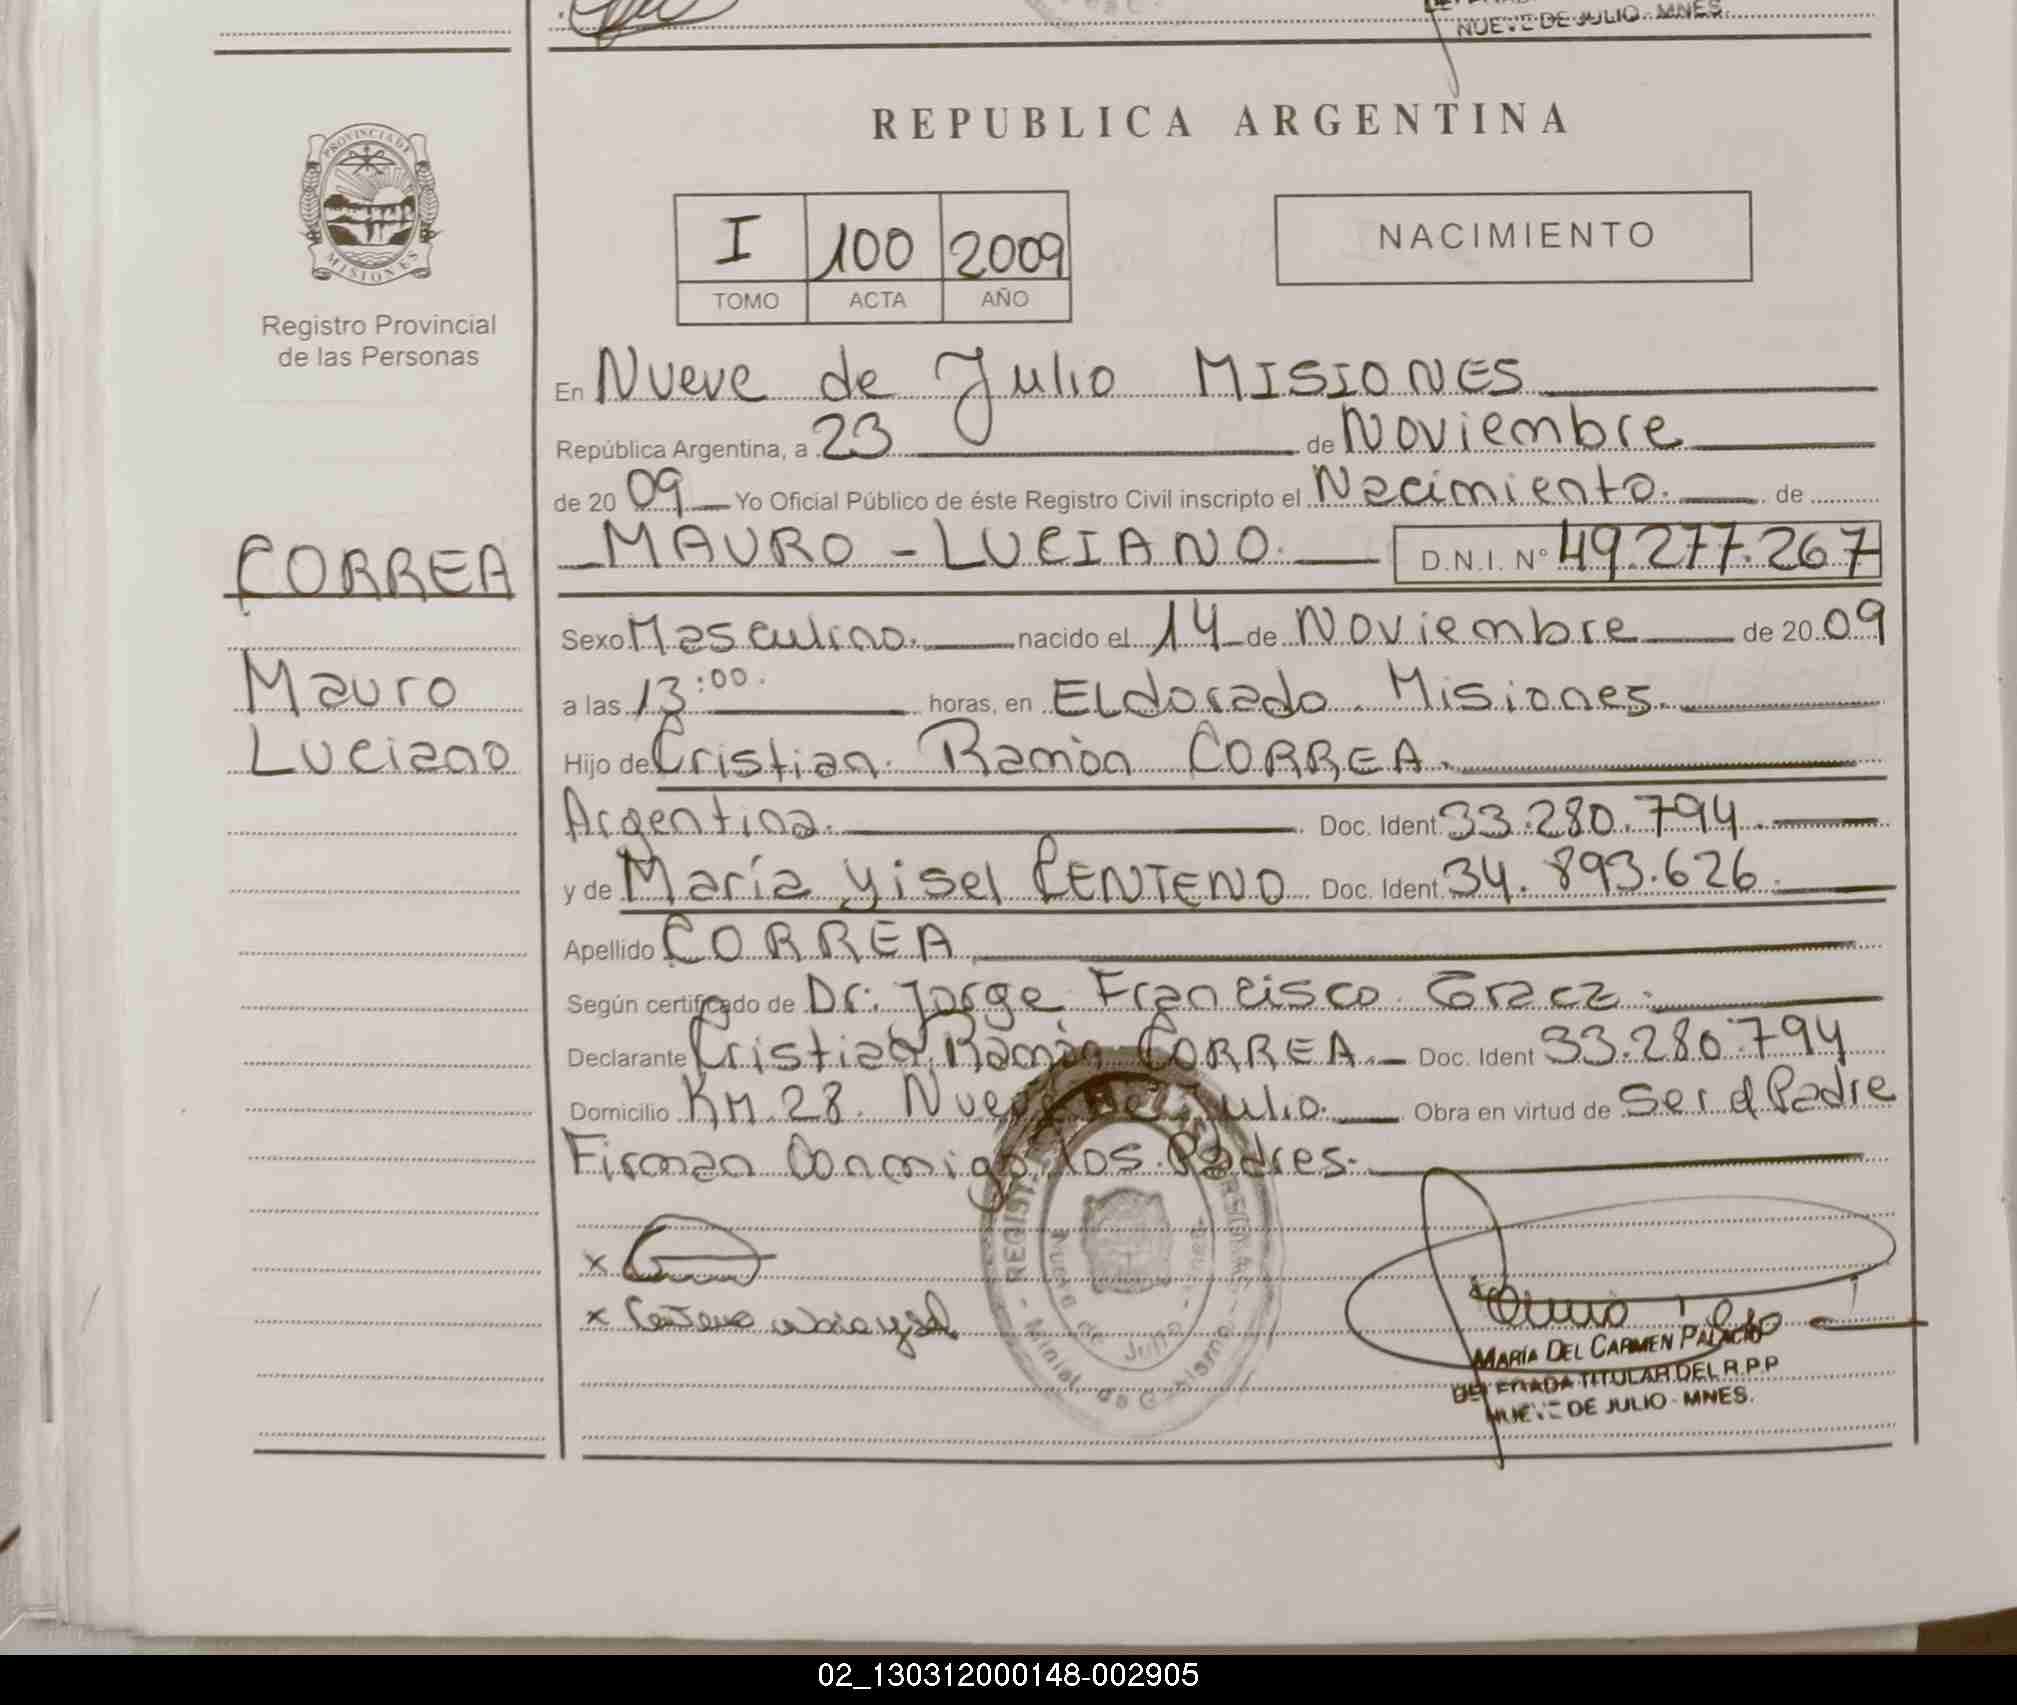 NUEVE DE JULIO - MNES.
REPUBLICA ARGENTINA
PROVINCIA DE MISIONES
Registro Provincial
de las Personas
I 100 2009
TOMO ACTA AÑO
NACIMIENTO
En Nueve de Julio MISIONES
República Argentina, a 23 de Noviembre
de 20 09 Yo Oficial Público de éste Registro Civil inscripto el Nacimiento. de
CORREA
Mauro
Luciano
MAURO - LUCIANO. D.N.I. Nº 49.277.267
Sexo Masculino. nacido el 14 de Noviembre de 20 09
a las 13:00. horas, en ELdorado. Misiones.
Hijo de Cristian Ramón CORREA.
Argentina. Doc. Ident. 33.280.794.
y de María Yisel CENTENO Doc. Ident. 34.893.626.
Apellido CORREA
Según certificado de Dr: Jorge Francisco
Declarante Cristian Ramón CORREA. Doc. Ident 33.280.794
Domicilio KM.28. Nueve de Julio. Obra en virtud de Ser el Padre
Firman Conmigo los Padres.
x
x Centeno
Nueve de Julio
MARÍA DEL CARMEN PALACIO
DELEGADA TITULAR DEL R.P.P
NUEVE DE JULIO - MNES.
02_130312000148-002905